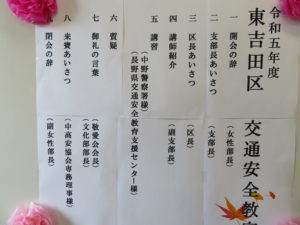 令和五年度
東吉田区 交通安全教
一 開会の辞 (女性部長)
二 支部長あいさつ (支部長)
三 区長あいさつ (区長)
四 講師紹介 (副支部長)
五 講習
(中野警察署様)
(長野県交通安全教育支援センター様)
六 質疑
七 御礼の言葉 (敬愛会会長)
(文化部部長)
八 来賓あいさつ (中高安協会専務理事様)
九 閉会の辞 (副女性部長)